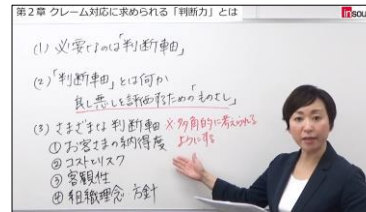 第2章 クレーム対応に求められる「判断力」とは
insou
(1) 必要なのは「判断軸」
(2)「判断軸」とは何か
良し悪しを評価するための「ものさし」
(3) さまざまな判断軸 ※多角的に考えられる
ようにする
①お客さまの納得度
②コストとリスク
③客観性
④組織理念 方針